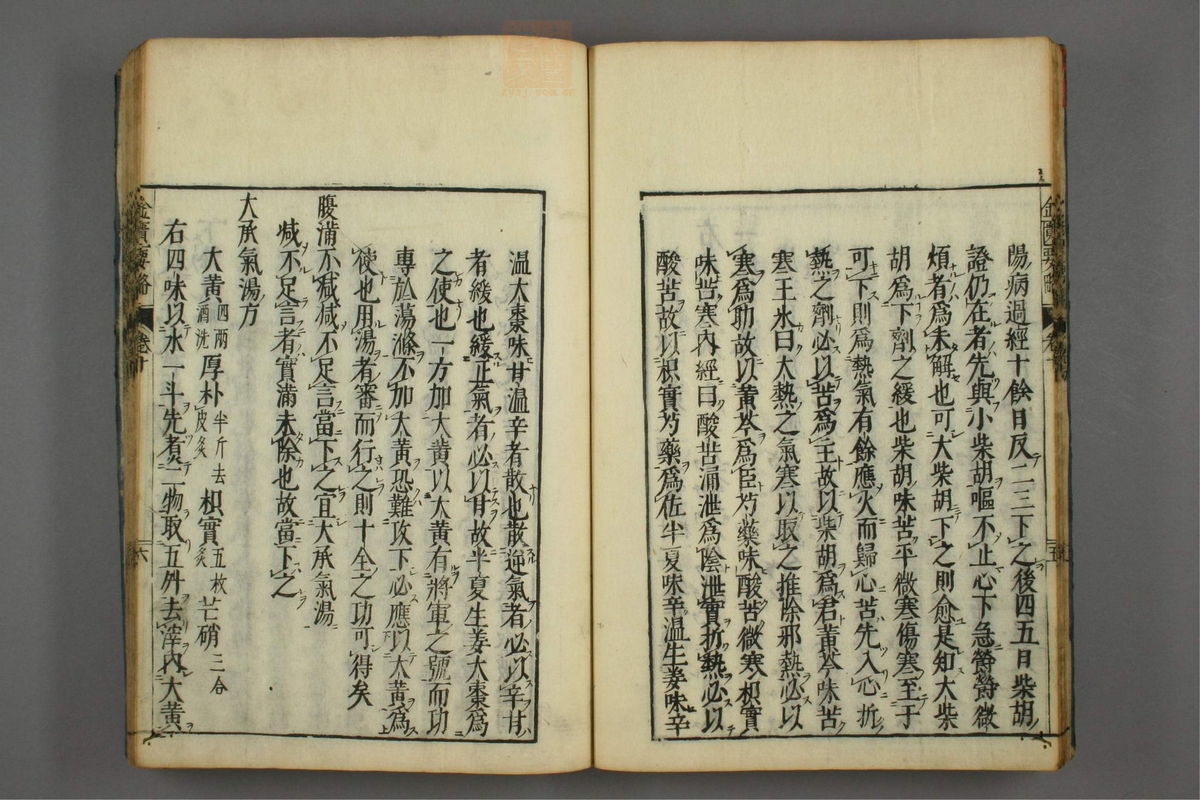 陽病過經十餘日反二三下之後四五日柴胡
證仍在者先與小柴胡嘔不止心下急鬱鬱微
煩者爲未解也可大柴胡下之則愈是知大柴
胡爲下劑之緩也柴胡味苦平微寒傷寒至于
可下則爲熱氣有餘應火而歸心苦先入心折
熱之劑必以苦爲主故以柴胡爲君黃芩味苦
寒王氷曰大熱之氣寒以取之推除邪熱必以
寒爲功故以黃芩爲臣芍藥味酸苦微寒枳實
味苦寒內經曰酸苦涌泄爲陰泄實折熱必以
酸苦故以枳實芍藥爲佐半夏味辛溫生姜味辛
溫大棗味甘溫辛者散也散逆氣者必以辛甘
者緩也緩正氣者必以甘故半夏生姜大棗爲
之使也一方加大黃以大黃有將軍之號而功
專於蕩滌不加大黃恐難攻下必應以大黃爲
使也用湯者審而行之則十全之功可得矣
腹滿不減減不足言當下之宜大承氣湯
減不足言者實滿未除也故當下之
大承氣湯方
大黃四兩酒洗 厚朴半斤去皮炙 枳實五枚炙 芒硝三合
右四味以水一斗先煮二物取五升去滓內大黃
金匱要略 卷十 六